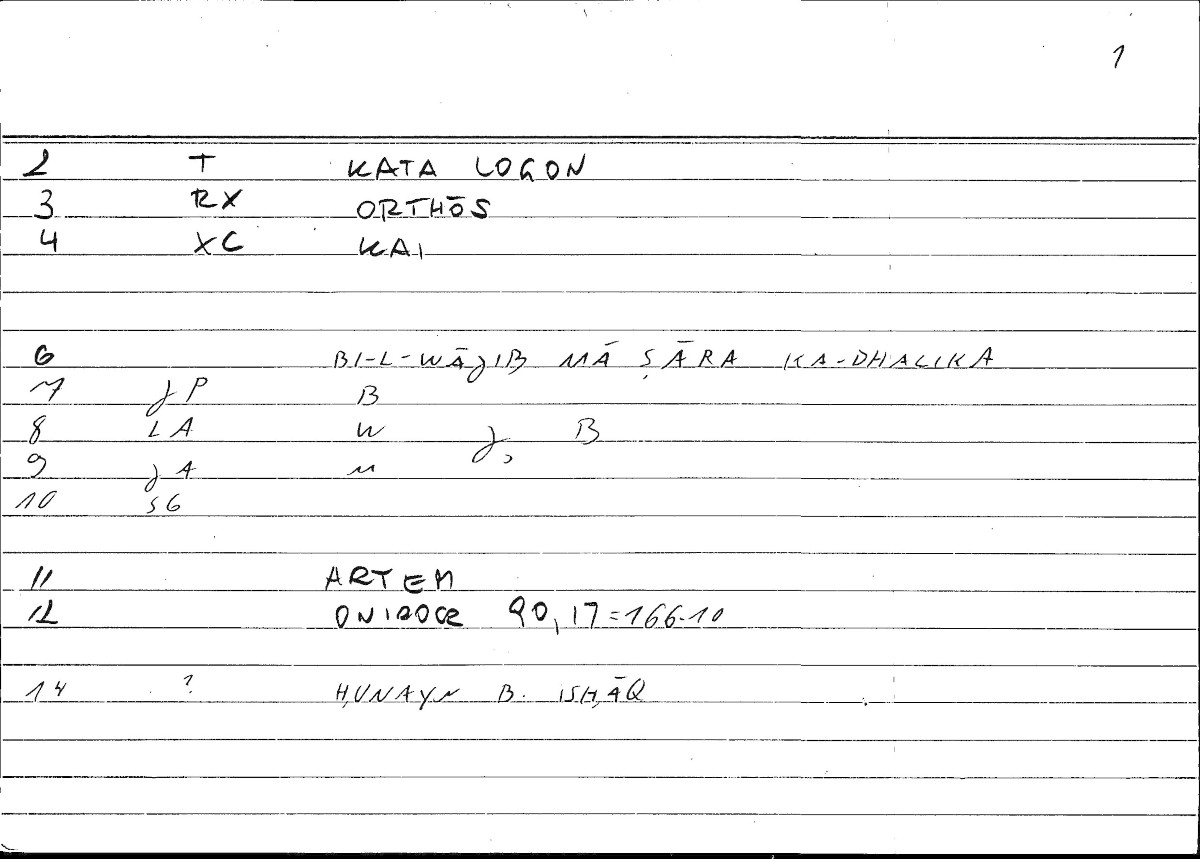 1
2 T KATA LOGON
3 RX ORTHŌS
4 XC KAI
6 BI-L-WĀJIB MĀ ṢĀRA KA-DHALIKA
7 JP B
8 LA W J, B
9 JA M
10 SG
11 ARTEM
12 ONIROCR 90,17=166.10
14 ? ḤUNAYN B. ISḤĀQ